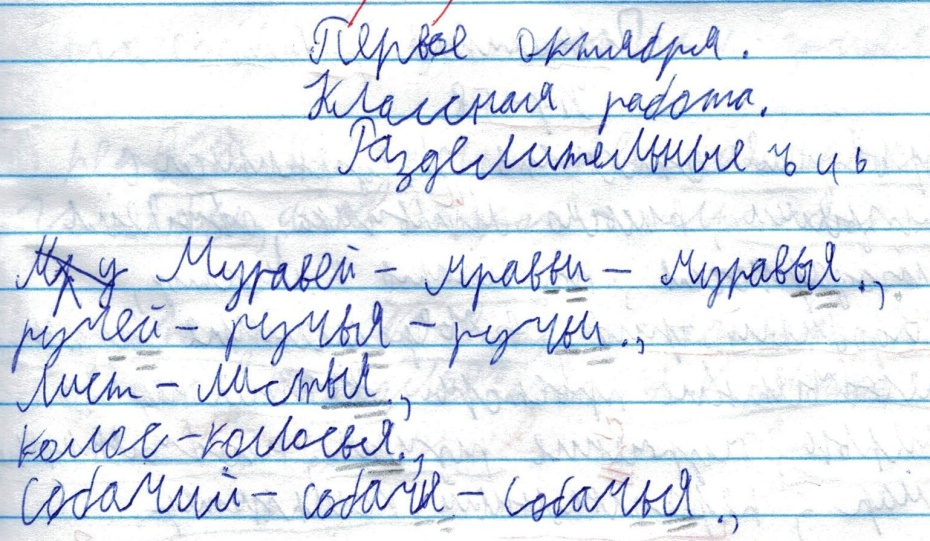 Первое октября.
Классная работа.
Разделительные ъ и ь
Муравей - мравьи - муравья.,
ручей - ручья - ручьи.,
Лист - листья.,
колос - колосья.,
собачий - собачя - собачья.,